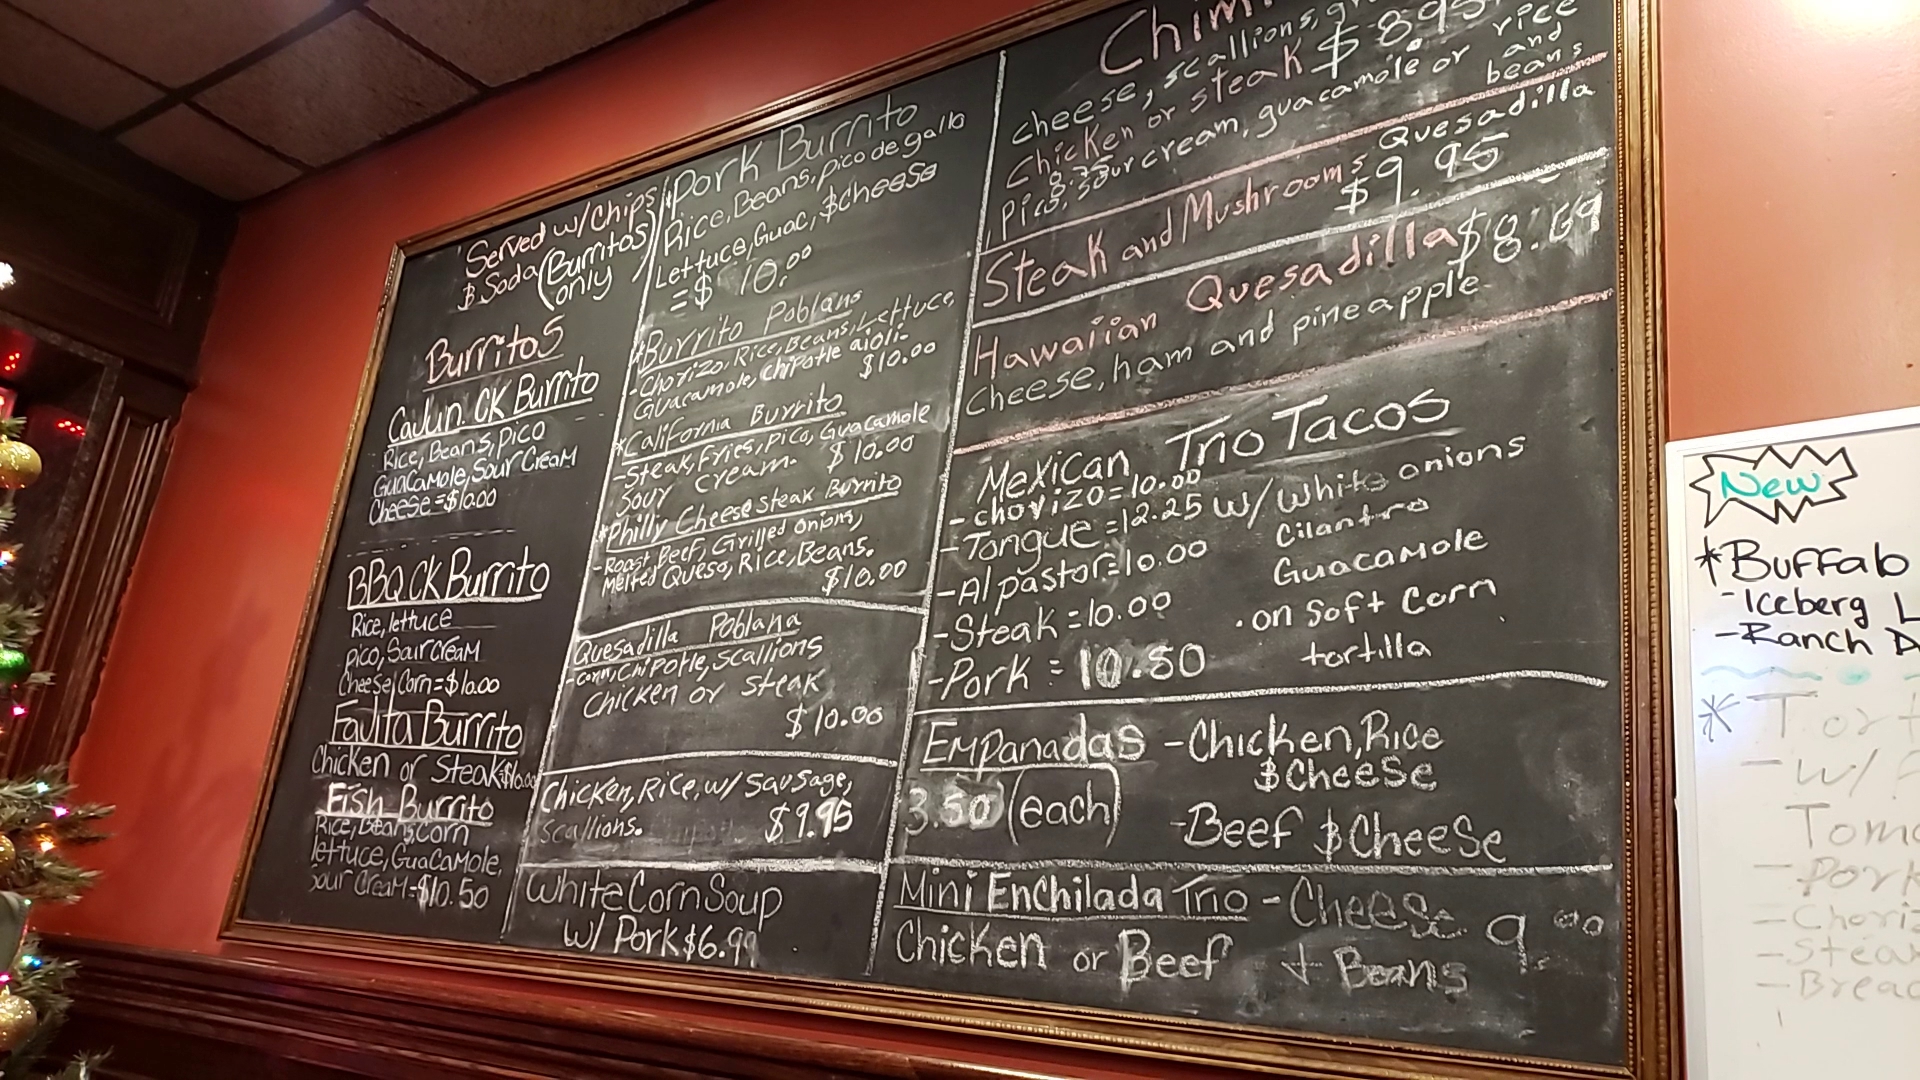 "Served w/Chips
$ Soda (Burritos
only)
Burritos
Cajun CK Burrito
Rice, Beans, Pico
Guacamole, Sour Cream
Cheese = $10.00
BBQ CK Burrito
Rice, lettuce
pico, Sour Cream
Cheese, Corn = $10.00
Fajita Burrito
Chicken or Steak $10.00
Fish Burrito
Rice, Beans, Corn
lettuce, Guacamole,
sour cream = $10.50
Pork Burrito
Rice, Beans, pico de gallo
Lettuce, Guac, $ cheese
= $ 10.00
*Burrito Poblano
-Chorizo, Rice, Beans, Lettuce,
Guacamole, Chipotle aioli.
$10.00
*California Burrito
-Steak, Fries, Pico, Guacamole
Sour cream. $10.00
*Philly Cheesesteak Burrito
-Roast Beef, Grilled onions,
Melted Queso, Rice, Beans.
$10.00
Quesadilla Poblana
-corn, Chipotle, scallions
Chicken or steak
$10.00
Chicken, Rice, w/ Sausage,
Scallions. $9.95
White Corn Soup
w/ Pork $6.99
Chim
cheese, scallions,
Chicken or steak $8.95
Pico, sour cream, guacamole or rice
and
beans
Steak and Mushrooms Quesadilla
$9.95
Hawaiian Quesadilla $8.69
Cheese, ham and pineapple.
Mexican Trio Tacos
-chorizo = 10.00
-Tongue = 12.25 w/ White onions
Cilantro
-Al pastor = 10.00 Guacamole
-Steak = 10.00 . on soft corn
tortilla
-Pork = 10.50
Empanadas -Chicken, Rice
$ Cheese
3.50 (each)
-Beef $ Cheese
Mini Enchilada Trio - Cheese 9.00
Chicken or Beef + Beans
New
*Buffalo
-Iceberg L
-Ranch D
*Tort
-w/
Toma
-Pork
-Choriz
-Steak
-Bread